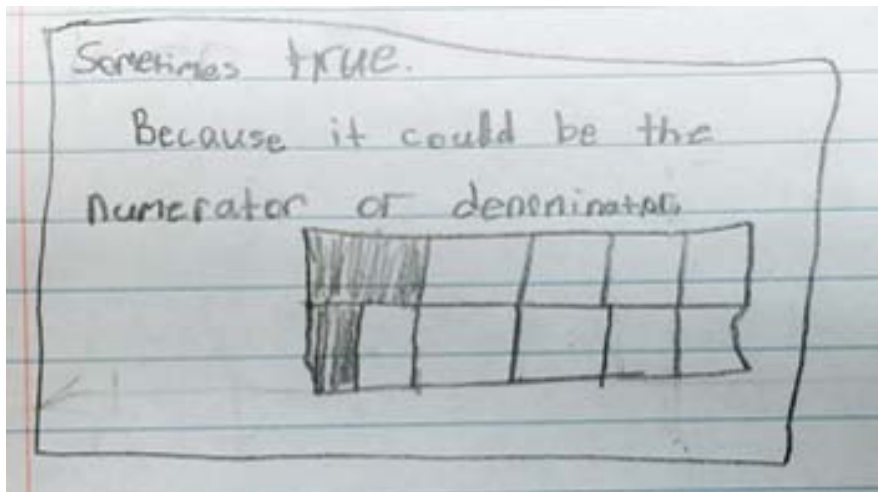 Sometimes true.
Because it could be the
numerator or denominator.